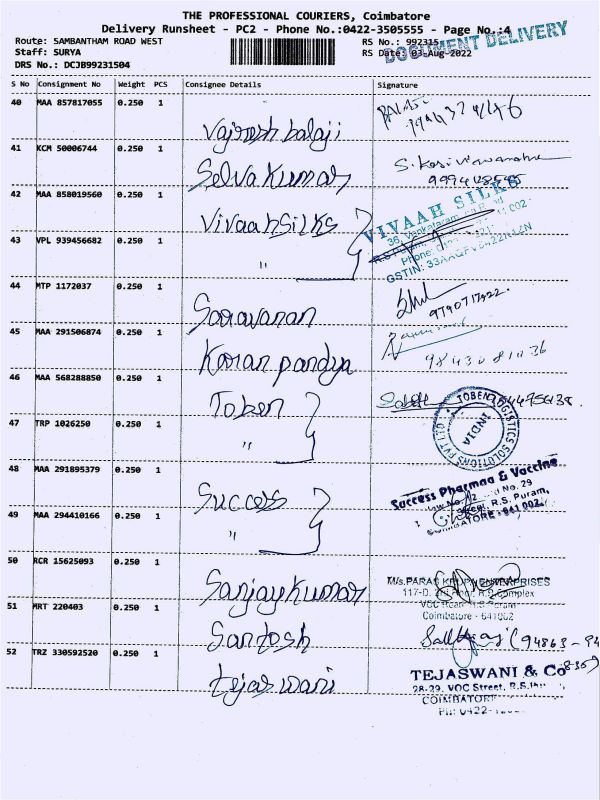 THE PROFESSIONAL COURIERS, Coimbatore
Delivery Runsheet - PC2 - Phone No.:0422-3505555 - Page No.:4
Route: SAMBANTHAM ROAD WEST
RS No.: 992315
DOCUMENT DELIVERY
Staff: SURYA
RS Date: 03-Aug-2022
DRS No.: DCJB99231504
S No Consignment No Weight PCS Consignee Details Signature
40 MAA 857817055 0.250 1
Vajresh balaji
41 KCM 50006744 0.250 1
Selva Kumar
42 MAA 858019560 0.250 1
Vivaah Silks
VIVAAH SILKS
43 VPL 939456682 0.250 1
"
Phone:
GSTIN:
44 MTP 1172037 0.250 1
Saravanan
45 MAA 291506874 0.250 1
Karan pandya
46 MAA 568288850 0.250 1
Toben
TOBEN LOGISTICS SOLUTIONS PVT LTD
INDIA
47 TRP 1026250 0.250 1
"
48 MAA 291895379 0.250 1
Success
Success Pharmaa & Vaccine
No. 29
R.S. Puram,
COIMBATORE - 641 002.
49 MAA 294410166 0.250 1
"
50 RCR 15625093 0.250 1
Sanjay Kumar
M/s. PARAS ENTERPRISES
117-D, Complex
Coimbatore - 641002
51 MRT 220403 0.250 1
Santosh
52 TRZ 330592520 0.250 1
tejaswani
TEJASWANI & Co
28-29, VOC Street,
COIMBATORE